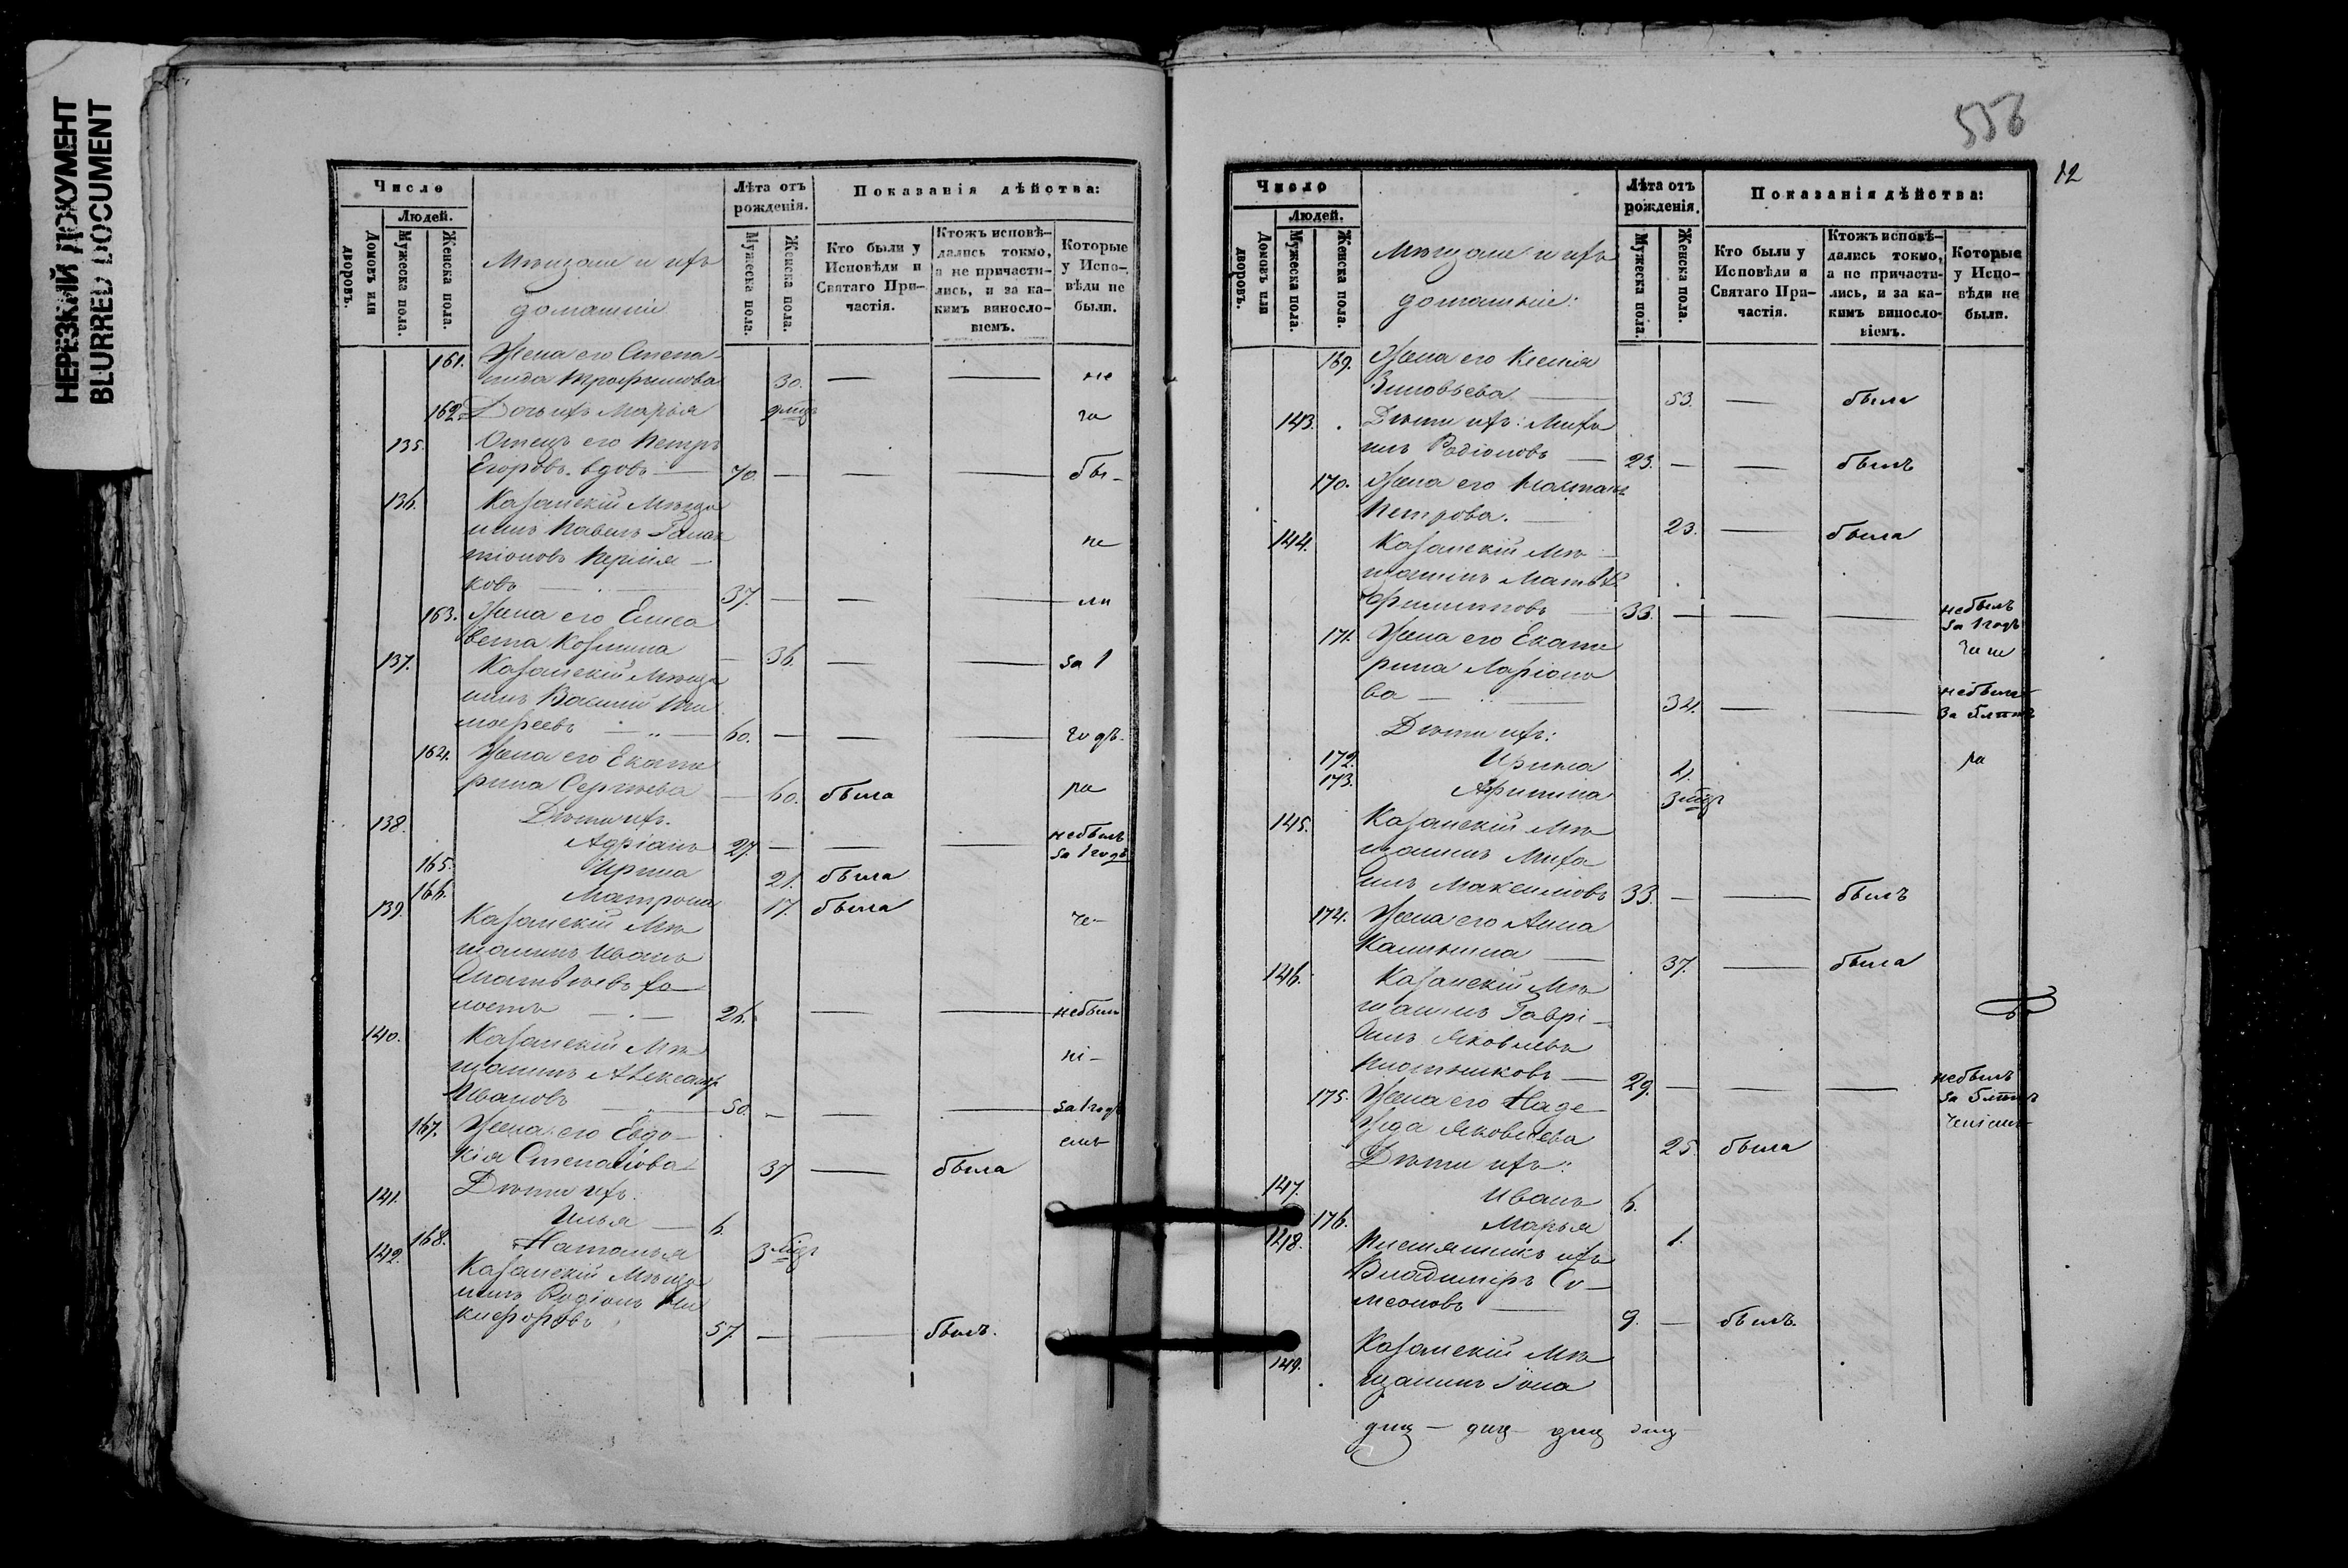 НЕРЕЗКИЙ ДОКУМЕНТ
BLURRED DOCUMENT
Число
Людей.
Домовъ или дворовъ.
Мужеска пола.
Женска пола.
Мѣщане и ихъ
домашніи
Лѣта отъ рожденія.
Мужеска пола.
Женска пола.
Показанія дѣйства:
Кто были у Исповѣди и Святаго Причастія.
Ктожъ исповѣдались токмо, а не причастились, и за какимъ винословіемъ.
Которые у Исповѣди не были.
161. Жена его Степа-
нида Трофимова 30. — — не
162. Дочь ихъ Марья 9 мцъ
135. Отецъ его Петръ
Егоровъ. вдовъ — 70. — — — бы-
136. Казанскій Мѣща
нинъ Павелъ
не
ковъ — 37. — — — ли
163. Жена его Елиса
вета Козмина — 36. — — за 1
137. Казанскій Мѣща
нинъ Василій Ти
мофеевъ — 60. — — — годъ.
164. Жена его Екате
рина Сергѣева — 60. была
138. Дѣти ихъ.
Адріанъ 27. — — — небылъ
за 1 годъ
165. Ирина 21. была
166. Матрона 17. была
139. Казанскій Мѣ
щанинъ Иванъ
Матвѣевъ хо
лостъ — 26. — — небылъ
140. Казанскій Мѣ
щанинъ Александр
Ивановъ — 50. — — — за 1 годъ
167. Жена его Евдо-
кія Степанова 37 — была
141. Дѣти ихъ.
Илья — 6.
168. Наталья 3 мцъ
142. Казанскій Мѣща
нинъ Родіонъ Ни
кифоровъ 57. — — былъ.
556
12
Число
Людей.
Домовъ или дворовъ.
Мужеска пола.
Женска пола.
Мѣщане и ихъ
домашніе:
Лѣта отъ рожденія.
Мужеска пола.
Женска пола.
Показанія дѣйства:
Кто были у Исповѣди и Святаго Причастія.
Ктожъ исповѣдались токмо, а не причастились, и за какимъ винословіемъ.
Которые у Исповѣди не были.
169. Жена его Ксенія
Зиновьева — 53. — была
143. Дѣти ихъ: Миха
илъ Родіоновъ — 23. — — былъ
170. Жена его
Петрова. — 23. — была
144. Казанскій Мѣ-
щанинъ Матвѣй
Филипповъ — 33. — — — небылъ
за 1 годъ
171. Жена его Екате
рина Ларіоно
ва — 34. — — небыла
за 5 лѣтъ
Дѣти ихъ:
172. 4.
173. 3 мцъ
145. Казанскій Мѣ
щанинъ Миха
илъ Максимовъ 33. — — былъ
174. Жена его Анна
Калинина — 37. — была
146. Казанскій Мѣ
щанинъ Гаврі-
илъ Яковлевъ
Плотниковъ — 29. — — — небылъ
за 5 лѣтъ
175. Жена его Наде-
жда Яковлева 25. была
Дѣти ихъ:
147. Иванъ 6.
176. Марья 1.
148. Племянникъ ихъ
Владимиръ Си-
меоновъ — 9. — былъ.
149. Казанскій Мѣ
щанинъ Іона